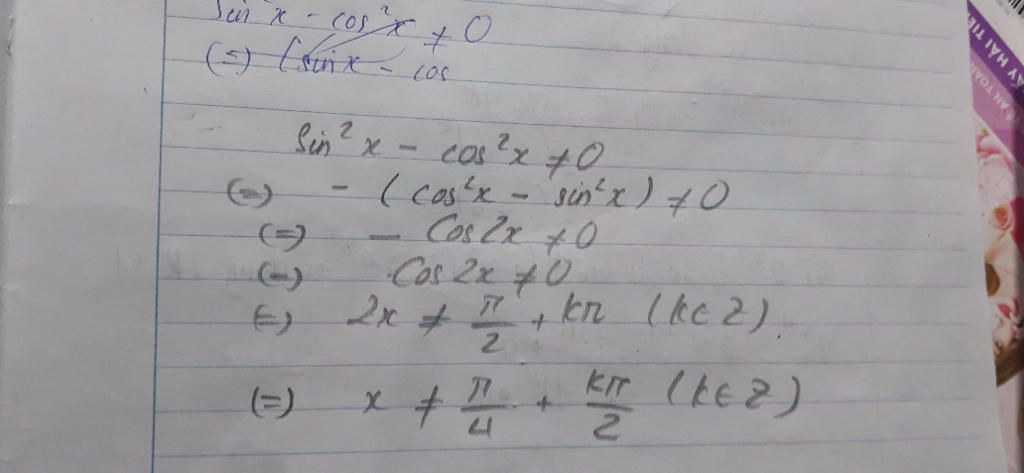 sin²x - cos²x ≠ 0
(=) (sinx - cos
sin²x - cos²x ≠ 0
(=) - (cos²x - sin²x) ≠ 0
(=) - Cos2x ≠ 0
(=) Cos2x ≠ 0
(=) 2x ≠ π/2 + kπ (k∈Z)
(=) x ≠ π/4 + kπ/2 (k∈Z)